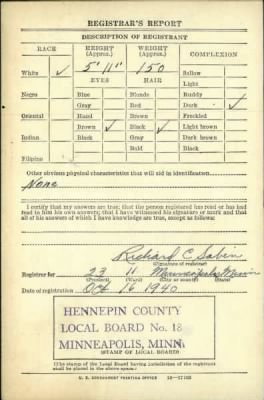 REGISTRAR'S REPORT
DESCRIPTION OF REGISTRANT
RACE
HEIGHT (Approx.)
WEIGHT (Approx.)
COMPLEXION
White ✓
5' 11"
150
Sallow
EYES
HAIR
Light
Negro
Blue
Blonde
Ruddy
Gray
Red
Dark ✓
Oriental
Hazel
Brown
Freckled
Brown ✓
Black ✓
Light brown
Indian
Black
Gray
Dark brown
Bald
Black
Filipino
Other obvious physical characteristics that will aid in identification
None
I certify that my answers are true; that the person registered has read or has had
read to him his own answers; that I have witnessed his signature or mark and that
all of his answers of which I have knowledge are true, except as follows:
Richard C Sabin
(Signature of registrar)
Registrar for 23 11 Minneapolis Minn
(Precinct) (Ward) (City or county) (State)
Date of registration Oct 16 1940
HENNEPIN COUNTY
LOCAL BOARD No. 18
MINNEAPOLIS, MINN.
(STAMP OF LOCAL BOARD)
(The stamp of the Local Board having jurisdiction of the registrant
shall be placed in the above space.)
U. S. GOVERNMENT PRINTING OFFICE